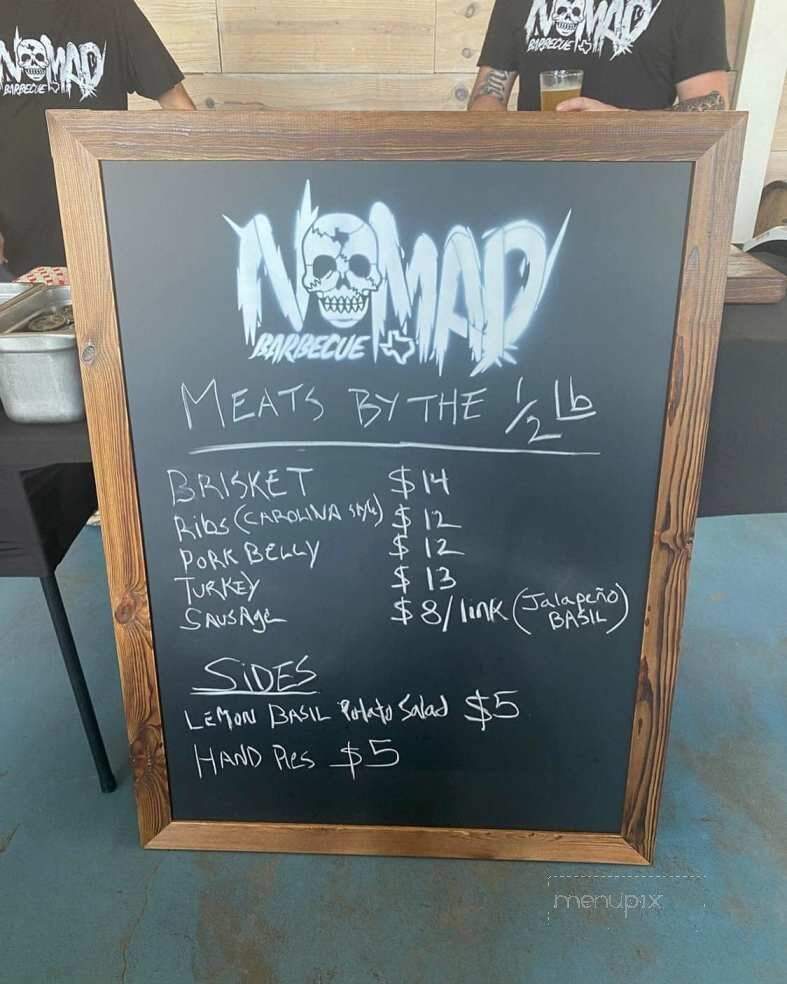 NOMAD
BARBECUE
NOMAD
BARBECUE
NOMAD
BARBECUE
MEATS BY THE 1/2 Lb
BRISKET $14
RiBS (CAROLINA Style) $12
PORK BELLY $12
TURKEY $13
SAUSAge $8/link (Jalapeño BASIL)
SiDES
LEMON BASIL Potato Salad $5
HAND Pies $5
menupix